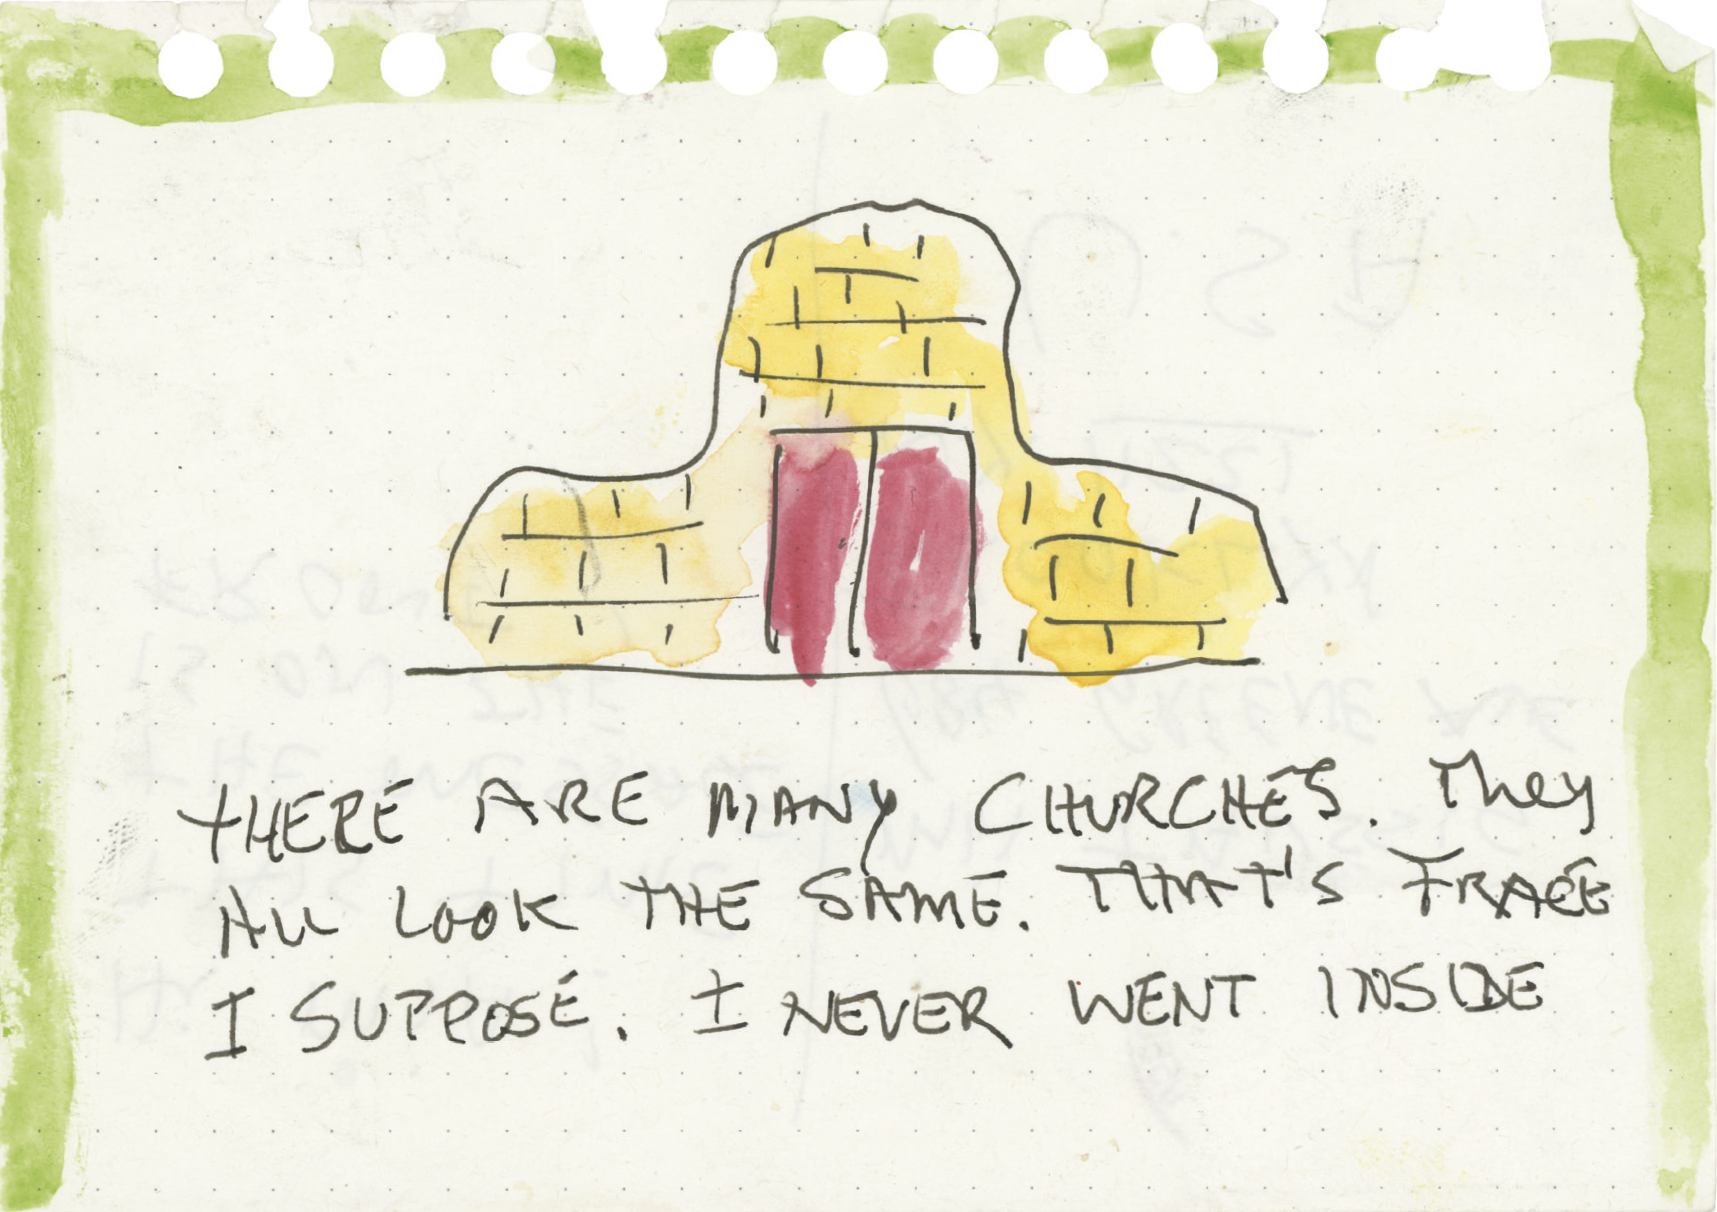 THERE ARE MANY CHURCHES. They
ALL LOOK THE SAME. THAT'S
I SUPPOSE. I NEVER WENT INSIDE